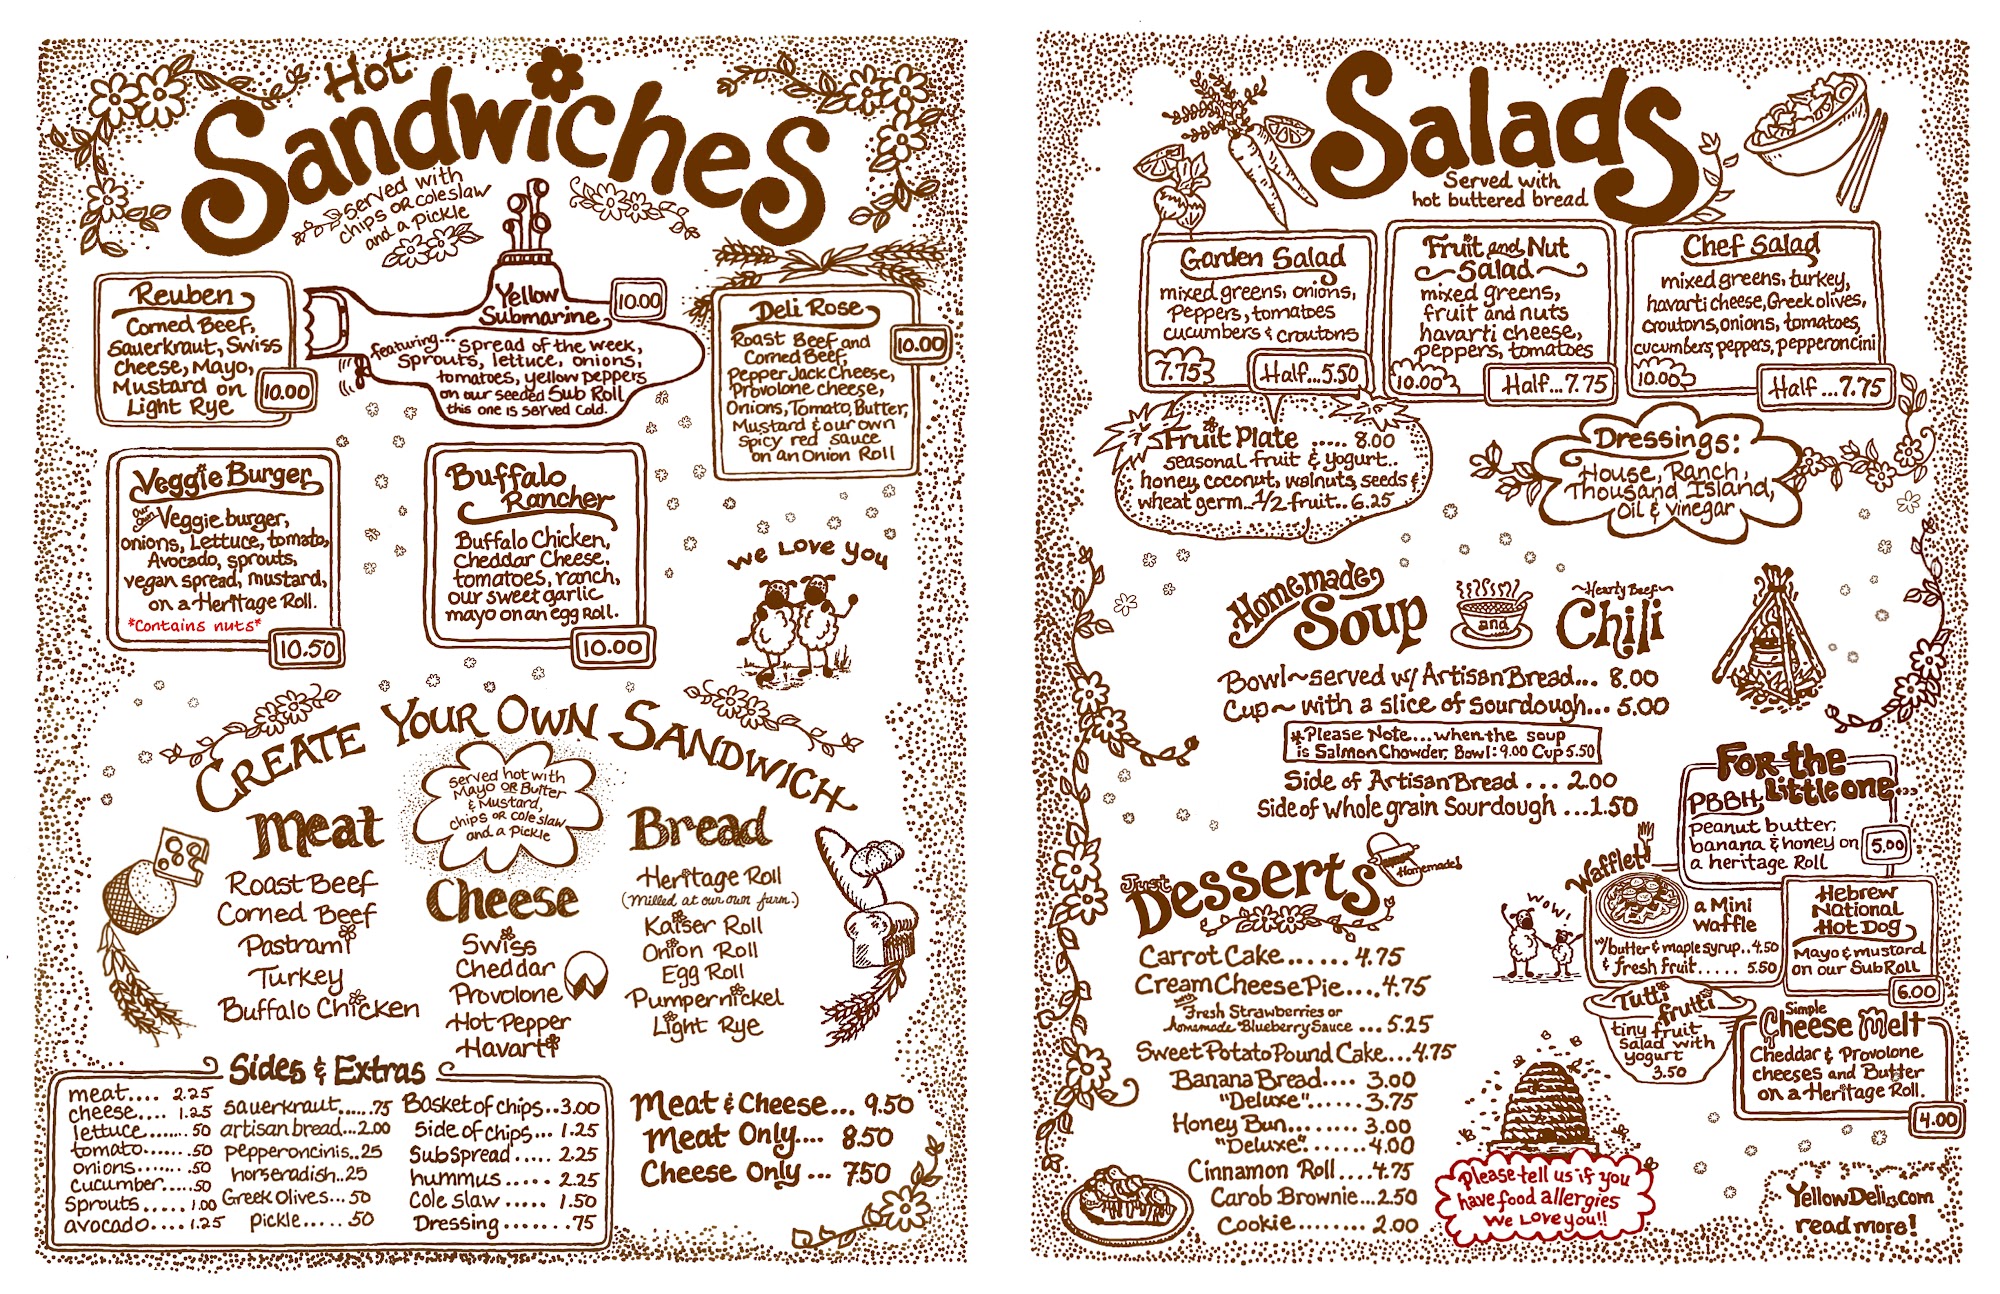 Hot
Sandwiches
served with
chips or coleslaw
and a pickle
Reuben
Corned Beef,
Sauerkraut, Swiss
Cheese, Mayo,
Mustard on
Light Rye
10.00
Yellow
Submarine
10.00
featuring... spread of the week,
sprouts, lettuce, onions,
tomatoes, yellow peppers
on our seeded Sub Roll
this one is served cold.
Deli Rose
10.00
Roast Beef and
Corned Beef,
Pepper Jack Cheese,
Provolone cheese,
Onions, Tomato, Butter,
Mustard & our own
spicy red sauce
on an Onion Roll
Veggie Burger
Our Own Veggie burger,
onions, Lettuce, tomato,
Avocado, sprouts,
vegan spread, mustard,
on a Heritage Roll.
*Contains nuts*
10.50
Buffalo
Rancher
Buffalo Chicken,
Cheddar Cheese,
tomatoes, ranch,
our sweet garlic
mayo on an egg Roll.
10.00
We Love You
Create Your Own Sandwich
served hot with
Mayo or Butter
& Mustard,
chips or coleslaw
and a pickle
Meat
Roast Beef
Corned Beef
Pastrami
Turkey
Buffalo Chicken
Cheese
Swiss
Cheddar
Provolone
Hot Pepper
Havarti
Bread
Heritage Roll
(Milled at our own farm.)
Kaiser Roll
Onion Roll
Egg Roll
Pumpernickel
Light Rye
Sides & Extras
meat.... 2.25
cheese.... 1.25
lettuce....... .50
tomato...... .50
onions....... .50
cucumber..... .50
Sprouts..... 1.00
avocado.... 1.25
sauerkraut..... .75
artisan bread...2.00
pepperoncinis..25
horseradish..25
Greek Olives... 50
pickle..... .50
Basket of chips..3.00
Side of chips... 1.25
Sub Spread..... 2.25
hummus..... 2.25
Cole slaw..... 1.50
Dressing....... .75
Meat & Cheese... 9.50
Meat Only.... 8.50
Cheese Only... 7.50
Salads
Served with
hot buttered bread
Garden Salad
mixed greens, onions,
Peppers, tomatoes
cucumbers & croutons
7.75
Half...5.50
Fruit and Nut
Salad
mixed greens,
fruit and nuts
havarti cheese,
peppers, tomatoes
10.00
Half...7.75
Chef Salad
mixed greens, turkey,
havarti cheese, Greek olives,
croutons, onions, tomatoes,
cucumbers, peppers, pepperoncini
10.00
Half...7.75
Fruit Plate ..... 8.00
seasonal fruit & yogurt
honey, coconut, walnuts, seeds &
wheat germ...1/2 fruit.. 6.25
Dressings:
House, Ranch,
Thousand Island,
Oil & vinegar
Homemade
Soup
and
~Hearty Beef~
Chili
Bowl~served w/ Artisan Bread... 8.00
Cup~ with a slice of Sourdough... 5.00
*Please Note...when the soup
is Salmon Chowder, Bowl: 9.00 Cup 5.50
Side of Artisan Bread . . . 2.00
Side of whole grain Sourdough ...1.50
For the
Little one...
PBBH
peanut butter,
banana & honey on
a heritage Roll
5.00
Waffle!
a Mini
Waffle
w/butter & maple syrup..4.50
& fresh fruit..... 5.50
WOW!
Hebrew
National
Hot Dog
Mayo & mustard
on our Sub Roll
6.00
Tutti
frutti
tiny fruit
salad with
yogurt
3.50
Simple
Cheese Melt
Cheddar & Provolone
cheeses and Butter
on a Heritage Roll.
4.00
Just
Desserts
Homemade!
Carrot Cake...... 4.75
Cream Cheese Pie....4.75
with
Fresh Strawberries or
homemade Blueberry Sauce ... 5.25
Sweet Potato Pound Cake...4.75
Banana Bread.... 3.00
"Deluxe"...... 3.75
Honey Bun....... 3.00
"Deluxe"....... 4.00
Cinnamon Roll....4.75
Carob Brownie...2.50
Cookie........ 2.00
Please tell us if you
have food allergies
We Love you!!
YellowDeli.com
read more!